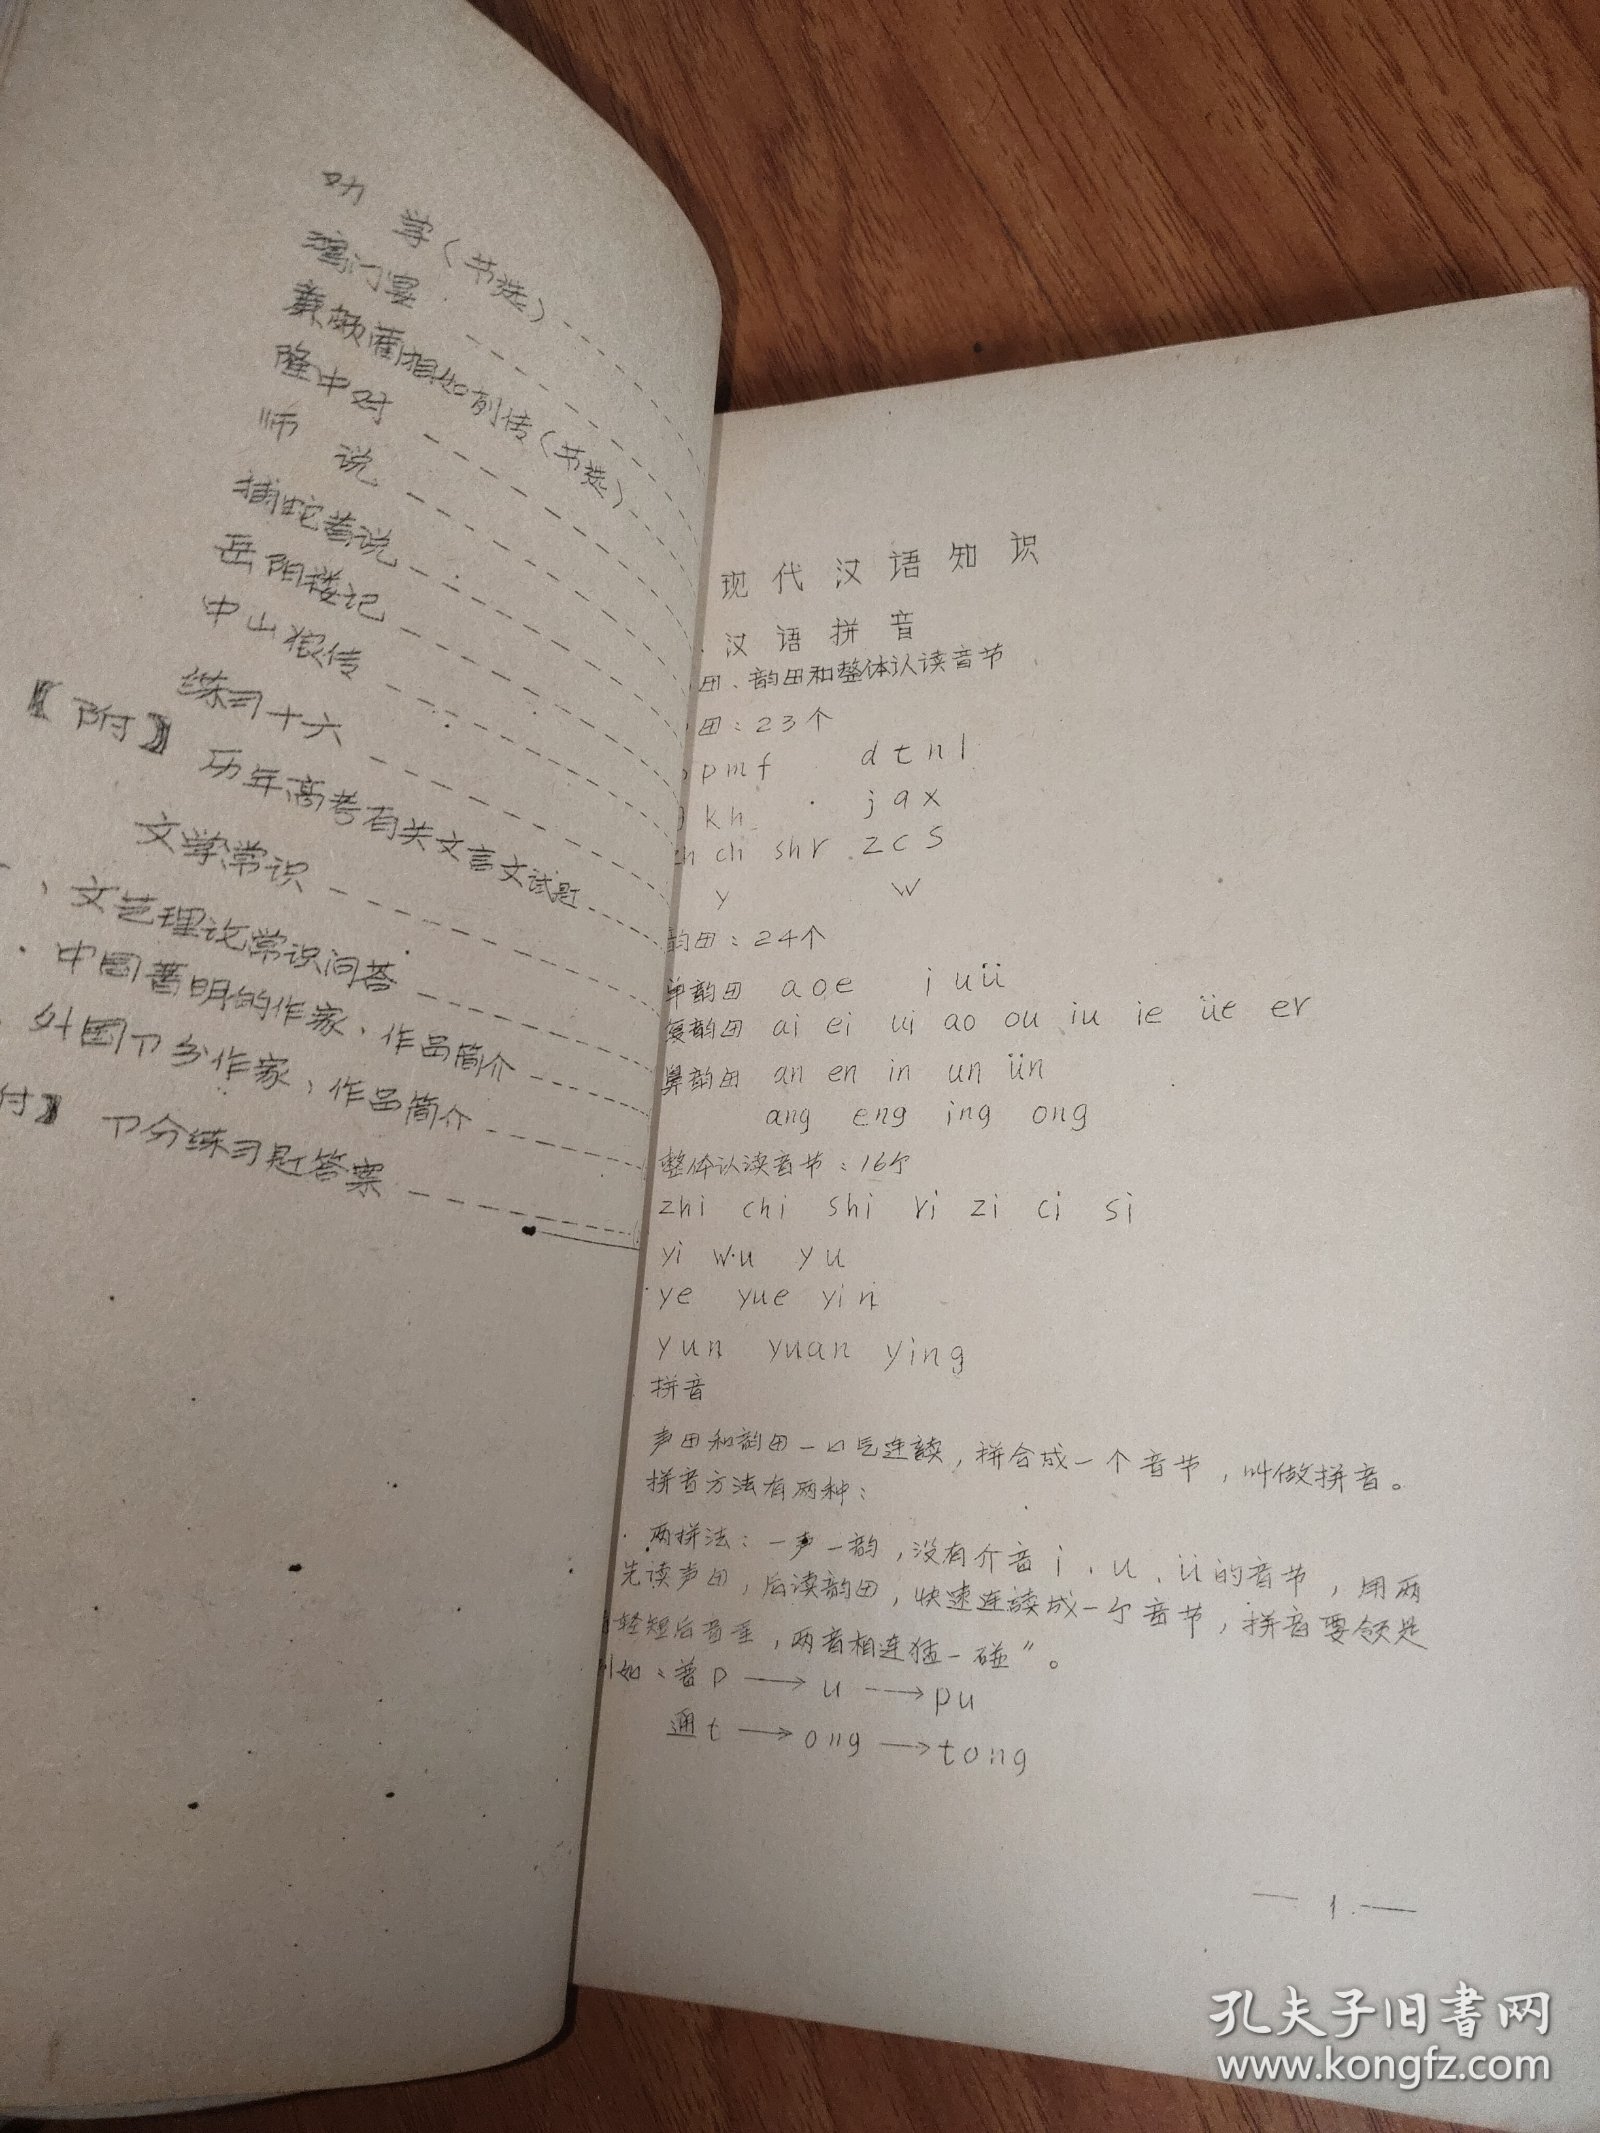 劝 学（节选）
鸿门宴
廉颇蔺相如列传（节选）
隆中对
师 说
捕蛇者说
岳阳楼记
中山狼传
练习十六
【附】历年高考有关文言文试题
文学常识
、文艺理论常识问答
中国著明的作家、作品简介
外国卩分作家、作品简介
付】 卩分练习题答案
现代汉语知识
汉语拼音
母、韵母和整体认读音节
母：23个
p m f d t n l
k h j q x
zh ch sh r z c s
y w
韵母：24个
单韵母 a o e i u ü
复韵母 ai ei ui ao ou iu ie üe er
鼻韵母 an en in un ün
ang eng ing ong
整体认读音节：16个
zhi chi shi ri zi ci si
yi wu yu
ye yue yin
yun yuan ying
拼音
声母和韵母一口气连读，拼合成一个音节，叫做拼音。
拼音方法有两种：
两拼法：一声一韵，没有介音i、u、ü的音节，用两
先读声母，后读韵母，快速连读成一个音节，拼音要领是
轻短后音重，两音相连猛一碰”。
例如、普 p → u → pu
通 t → ong → tong
— 1. —
孔夫子旧书网
www.kongfz.com